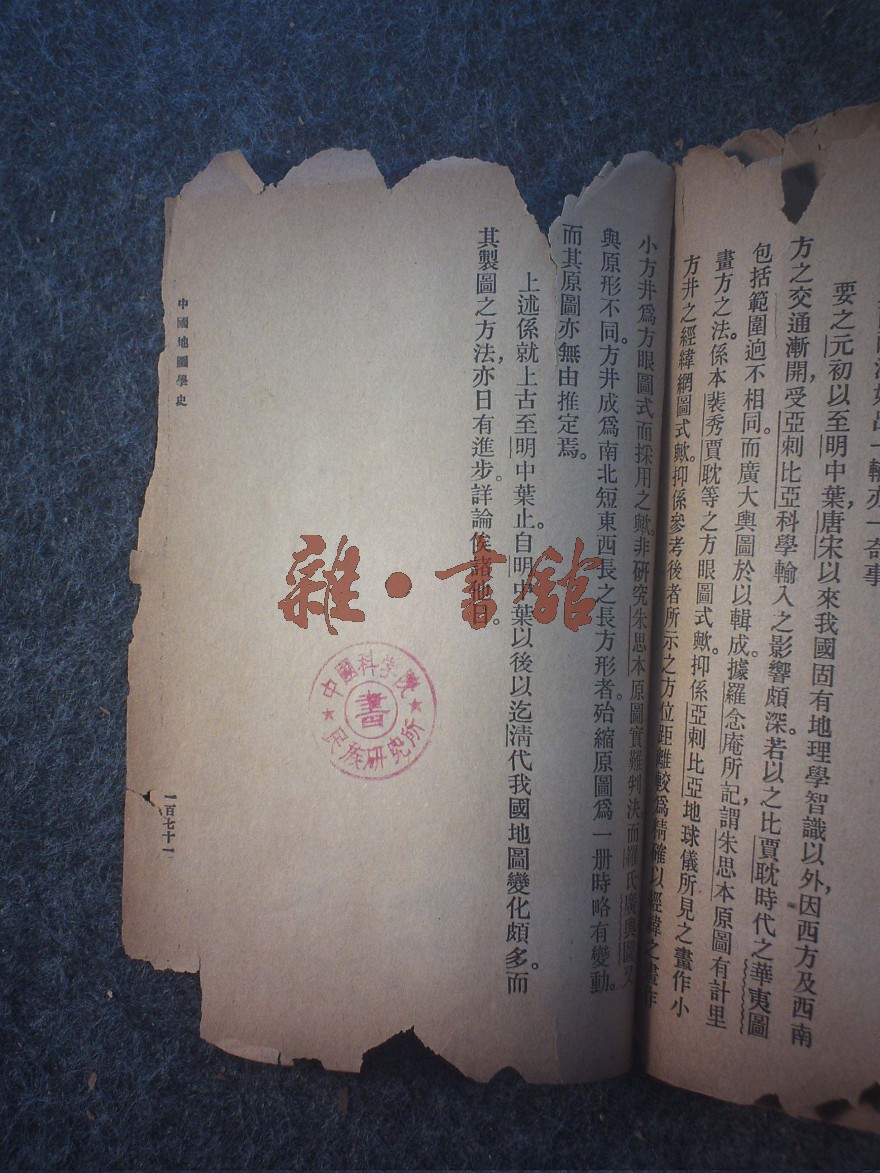 一奇事
要之元初以至明中葉，唐宋以來我國固有地理學智識以外，因西方及西南
方之交通漸開，受亞剌比亞科學輸入之影響頗深。若以之比賈耽時代之華夷圖
包括範圍逈不相同。而廣大輿圖於以輯成。據羅念庵所記，謂朱思本原圖有計里
畫方之法。係本裴秀賈耽等之方眼圖式歟。抑係亞剌比亞地球儀所見之畫作小
方井之經緯網圖式歟。抑係參考後者所示之方位距離較爲精確以經緯之畫作
小方井爲方眼圖式而採用之歟。非研究朱思本原圖實難判決而羅氏廣輿圖又
與原形不同。方井成爲南北短東西長之長方形者。殆縮原圖爲一册時略有變動。
而其原圖亦無由推定焉。
上述係就上古至明中葉止。自明中葉以後以迄清代我國地圖變化頗多。而
其製圖之方法，亦日有進步。詳論俟諸他日。
中國地圖學史
一百七十一
雜·書舘
中國科學院
民族研究所
書